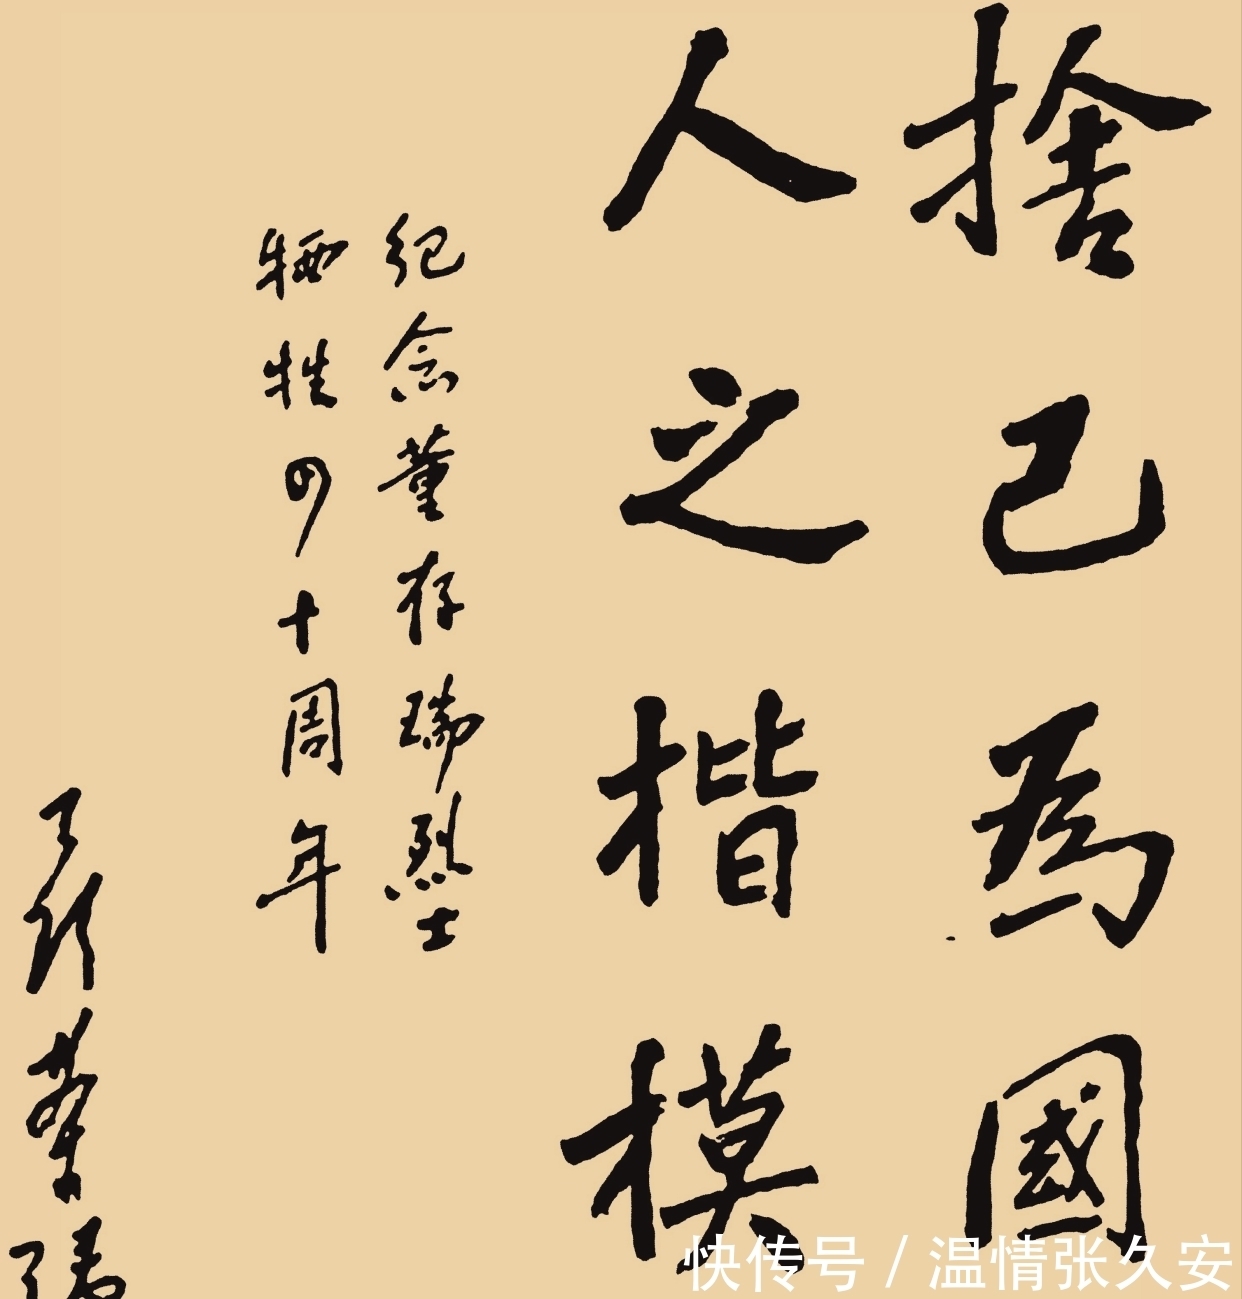 捨己為國
人之楷模
紀念董存瑞烈士
牺牲四十周年
快传号 / 温情张久安